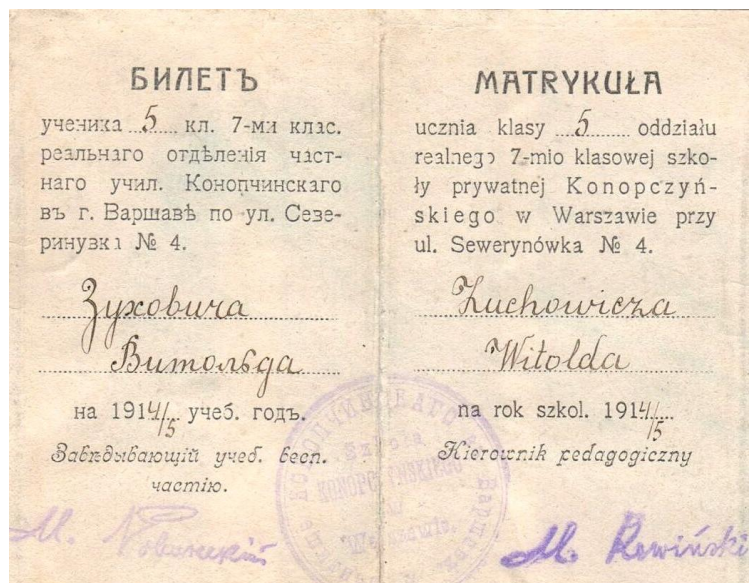 БИЛЕТЪ
ученика 5 кл. 7-ми клас.
реальнаго отдѣленія част-
наго учил. Конопчинскаго
въ г. Варшавѣ по ул. Севе-
ринувка № 4.
Зуховича
Витольда
на 1914/5 учеб. годъ.
Завѣдывающій учеб. восп.
частію.
М.
MATRYKUŁA
ucznia klasy 5 oddziału
realnego 7-mio klasowej szko-
ły prywatnej Konopczyń-
skiego w Warszawie przy
ul. Sewerynówka № 4.
Zuchowicza
Witolda
na rok szkol. 1914/5
Kierownik pedagogiczny
M. Rewiński